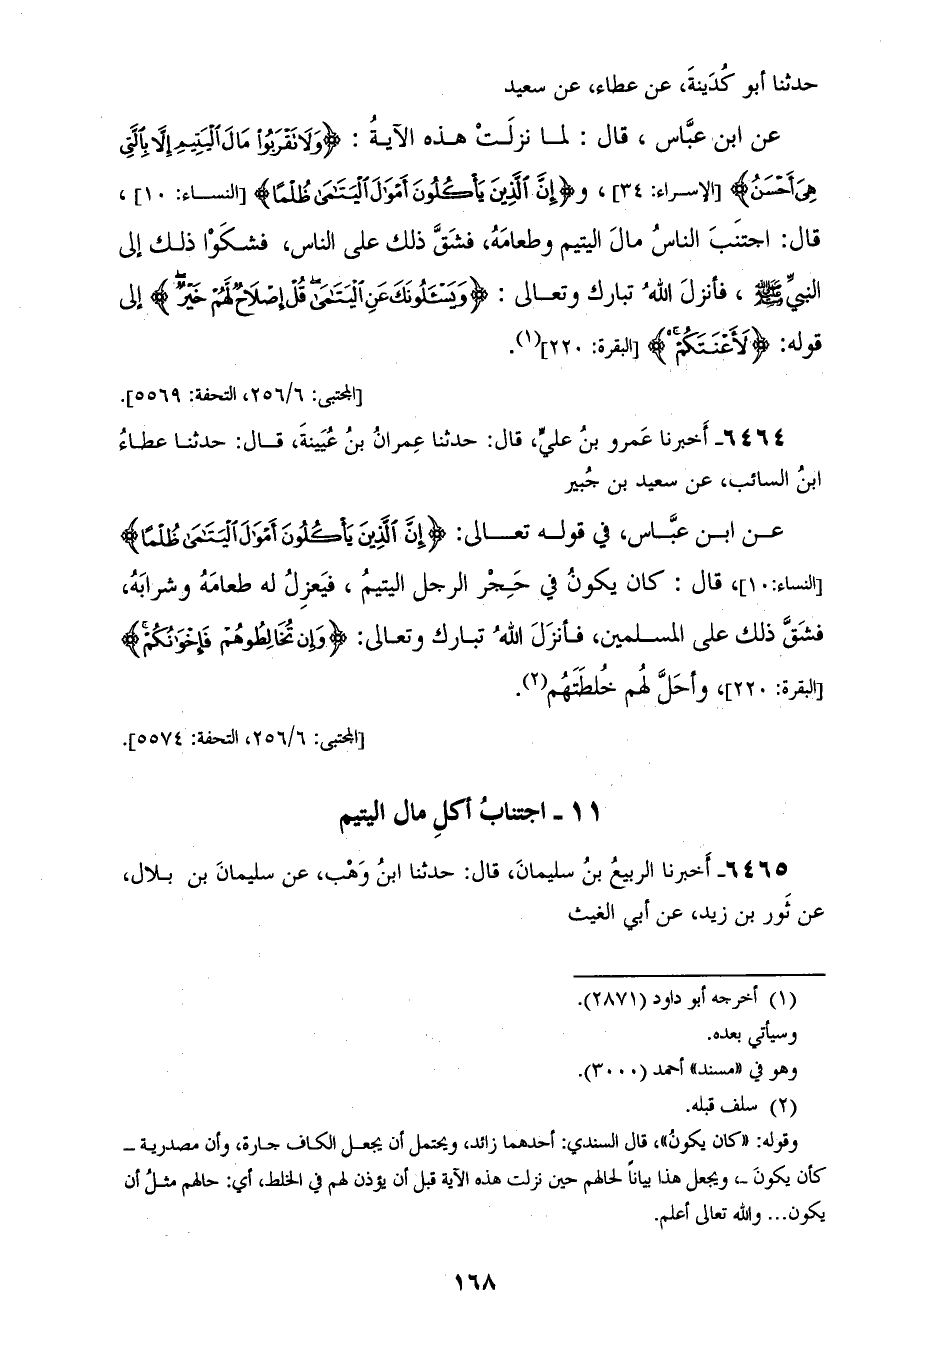 حدثنا أبو كُدَينةَ، عن عطاء، عن سعيد
عن ابن عبَّاس ، قال : لما نزلَتْ هذه الآيةُ : ﴿وَلَا نَقْرَبُواْ مَالَ ٱلْيَتِيمِ إِلَّا بِٱلَّتِي
هِيَ أَحْسَنُ﴾ [الإسراء: ٣٤] ، و﴿إِنَّ ٱلَّذِينَ يَأْكُلُونَ أَمْوَٰلَ ٱلْيَتَٰمَىٰ ظُلْمًا﴾ [النساء: ١٠] ،
قال: اجتنَبَ الناسُ مالَ اليتيم وطعامَهُ، فشَقَّ ذلك على الناس، فشكَوْا ذلك إلى
النبيِّ ﷺ ، فأنزلَ اللهُ تبارك وتعالى : ﴿وَيَسْـَٔلُونَكَ عَنِ ٱلْيَتَٰمَىٰۖ قُلْ إِصْلَاحٌ لَّهُمْ خَيْرٌۖ﴾ إلى
قوله: ﴿لَأَعْنَتَكُمْۚ﴾ [البقرة: ٢٢٠](١).
[المجتبى: ٢٥٦/٦، التحفة: ٥٥٦٩].
٦٤٦٤ـ أَخبرنا عَمرو بنُ عليٍّ، قال: حدثنا عِمرانُ بنُ عُيَينةَ، قال: حدثنا عطاءُ
ابنُ السائب، عن سعيد بن جُبير
عن ابن عبَّاس، في قوله تعالى: ﴿إِنَّ ٱلَّذِينَ يَأْكُلُونَ أَمْوَٰلَ ٱلْيَتَٰمَىٰ ظُلْمًا﴾
[النساء:١٠]، قال : كان يكونُ في حَجْر الرجل اليتيمُ ، فيَعزِلُ له طعامَهُ وشرابَهُ،
فشقَّ ذلك على المسلمين، فأنزَلَ اللهُ تبارك وتعالى: ﴿وَإِن تُخَالِطُوهُمْ فَإِخْوَٰنُكُمْۚ﴾
[البقرة: ٢٢٠]، وأحَلَّ لهُم خُلطَتَهُم(٢).
[المجتبى: ٢٥٦/٦، التحفة: ٥٥٧٤].
١١ ـ اجتنابُ أكلِ مال اليتيم
٦٤٦٥ـ أَخبرنا الربيعُ بنُ سليمانَ، قال: حدثنا ابنُ وَهْب، عن سليمانَ بن بلال،
عن ثَور بن زيد، عن أبي الغيث
(١) أخرجه أبو داود (٢٨٧١).
وسيأتي بعده.
وهو في «مسند» أحمد (٣٠٠٠).
(٢) سلف قبله.
وقوله: «كان يكونُ»، قال السندي: أحدهما زائد، ويحتمل أن يجعل الكاف جارة، وأن مصدرية ـ
كأن يكونَ ـ، ويجعل هذا بياناً لحالهم حين نزلت هذه الآية قبل أن يؤذن لهم في الخلط، أي: حالهم مثلُ أن
يكون... والله تعالى أعلم.
١٦٨